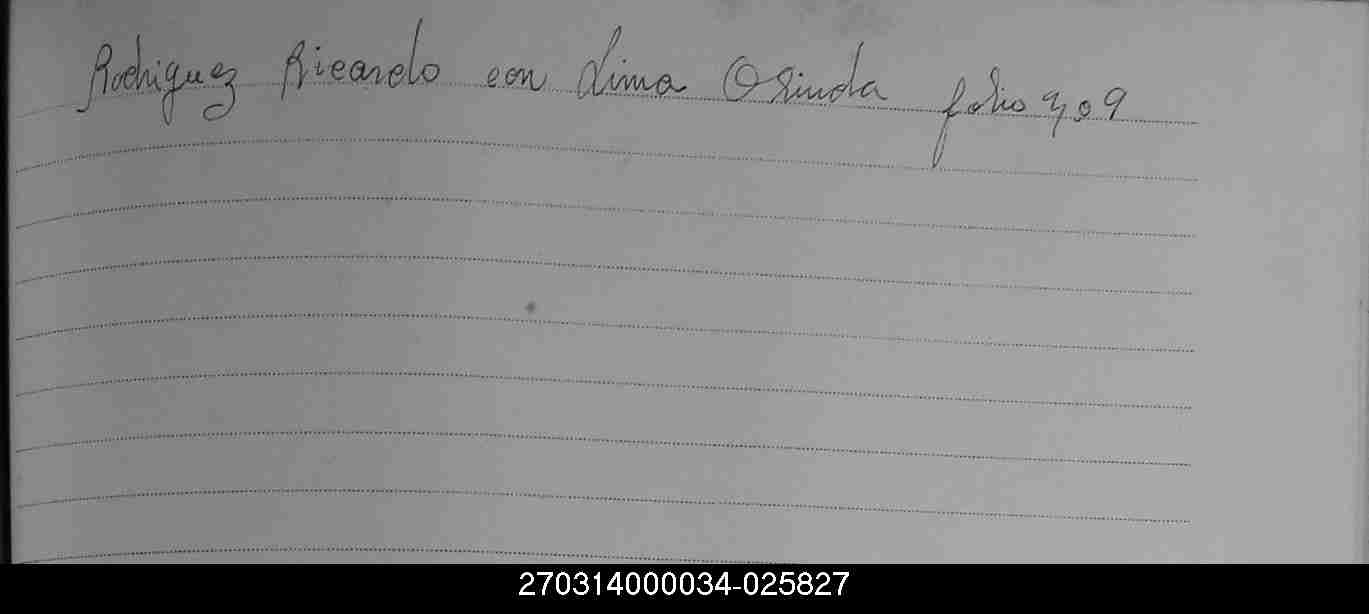 Rodriguez Ricardo con Lima Orinda folio 309
270314000034-025827